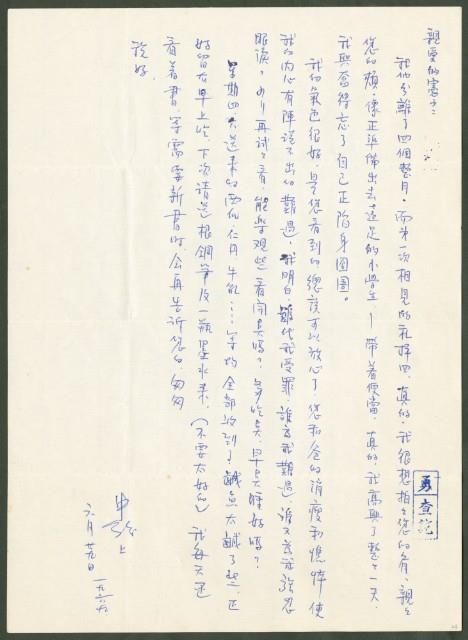 親愛的
我們分離了四個整月，而第一次相見的禮拜四，真的，我很想拍拍您的肩，親親
您的頰，像正準備出去遠足的小學生－帶著便當，真的，我高興了整整一天，
我興奮得忘了自己正陷身囹圄。
我的氣色很好，是您看到的，總該可以放心了，您和爸的消瘦和憔悴使
我的內心有陣說不出的難過，我明白，誰代我受罪，誰為我難過，誰又為我強忍
眼淚，再試試看，能學習樂觀些看開點嗎？多吃點，早點睡好嗎？
星期四送來的西瓜、牛乳……等均全部收到了，鹹魚太鹹了些，正
好留在早上吃，下次請送根鋼筆及一瓶墨水來，（不要太好的）我每天還
看看書，等需要新書時，會再告訴您的，匆匆
祝好。
上
六月廿九日 一九六六
查訖